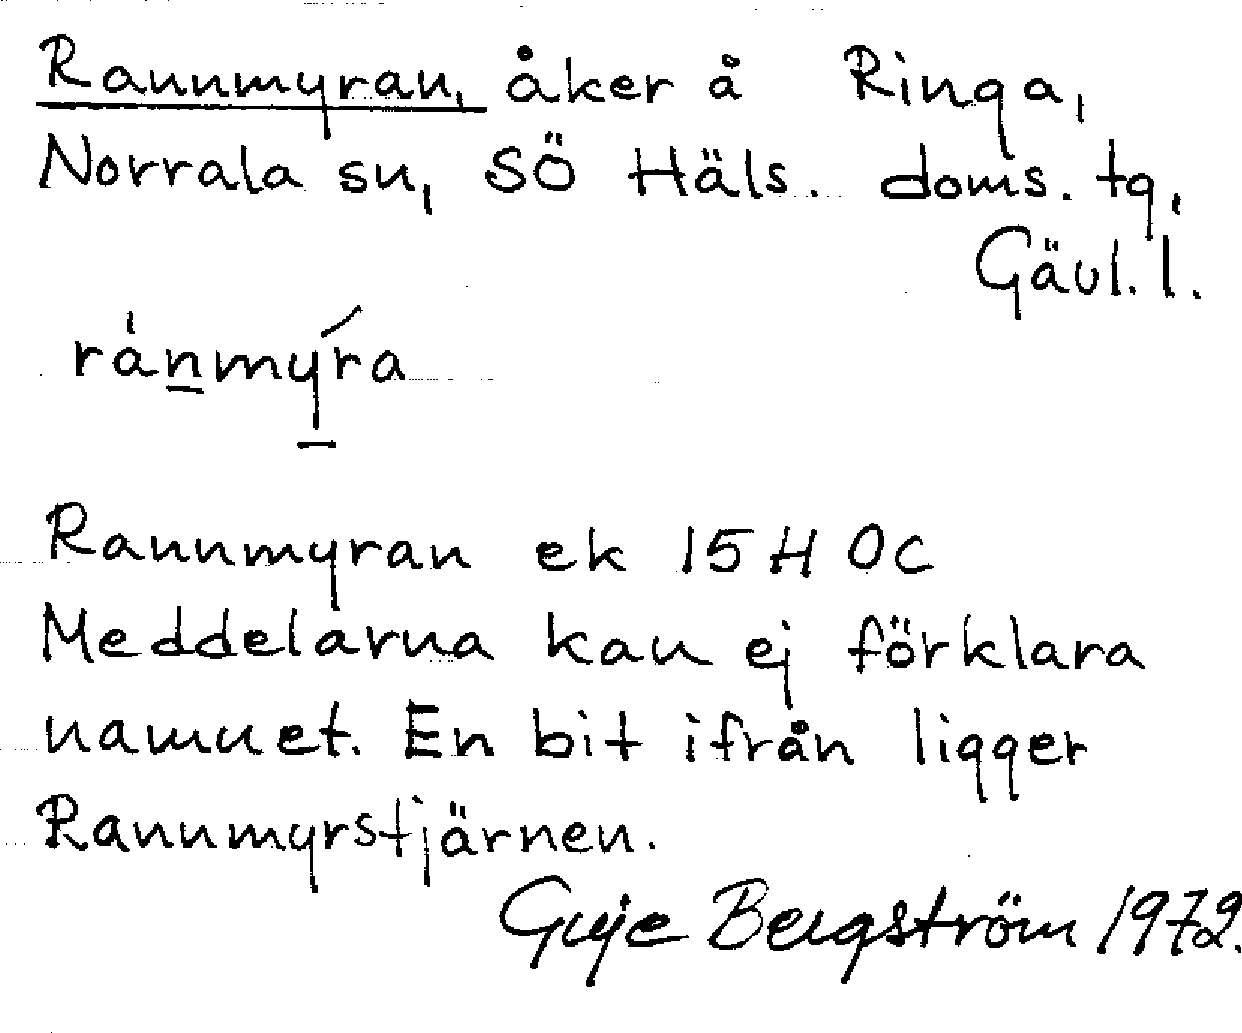 Rannmyran, åker å Ringa,
Norrala sn, SÖ Häls. doms. tg,
Gävl. l.
ránmýra
Rannmyran ek 15H 0c
Meddelarna kan ej förklara
namnet. En bit ifrån ligger
Rannmyrstjärnen.
Bergström 1972.